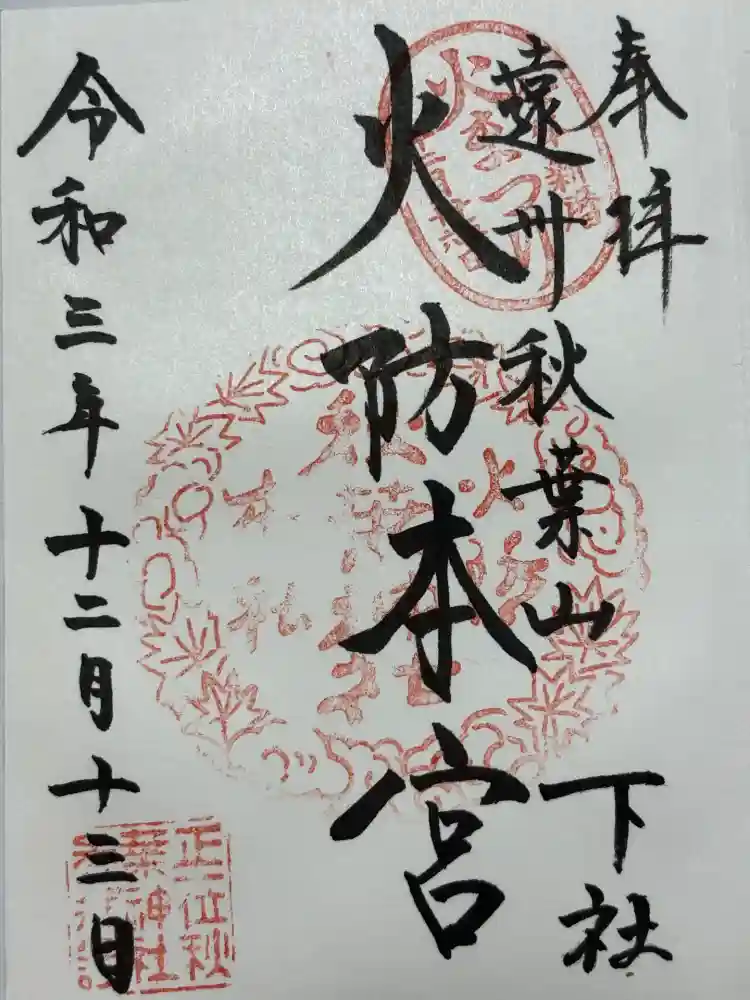 奉拝
遠州秋葉山
下社
火防本宮
令和三年十二月十三日
正一位秋
葉神社